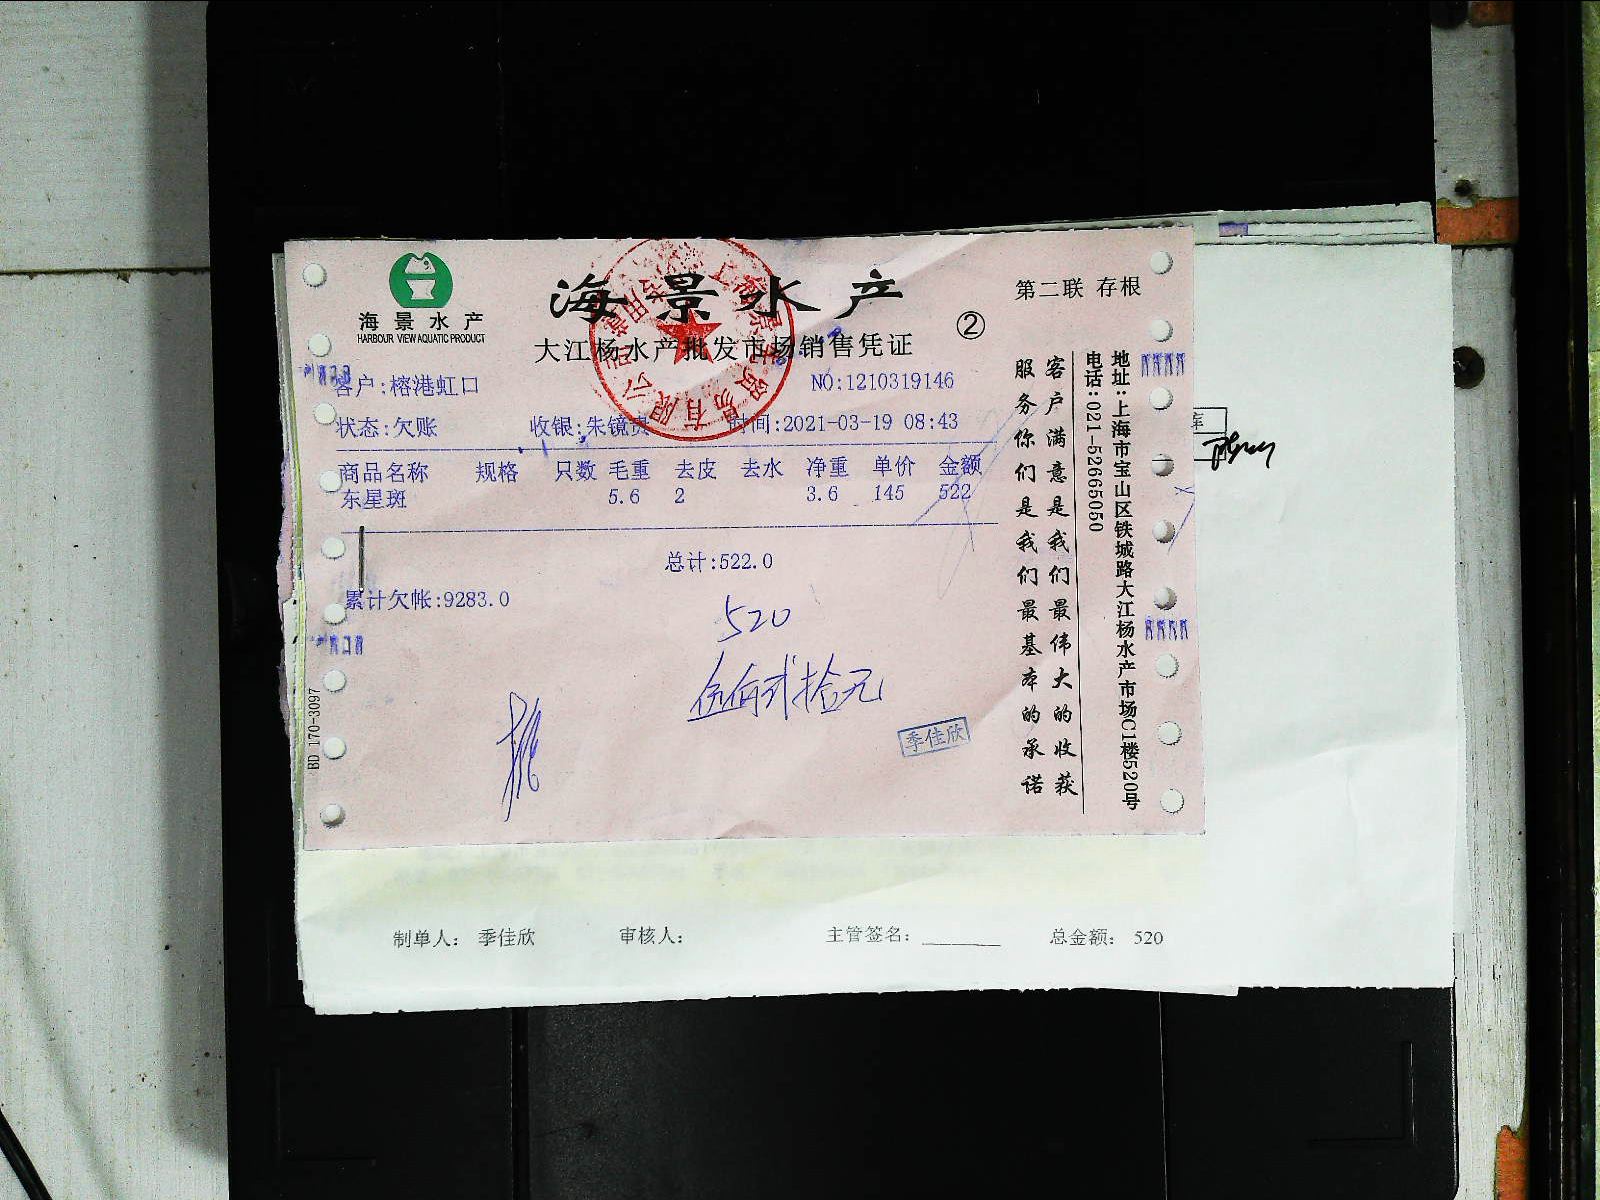 海景水产
HARBOUR VIEW AQUATIC PRODUCT
海景水产
大江杨水产批发市场销售凭证
②
第二联 存根
客户:榕港虹口
NO:1210319146
状态:欠账 收银:朱镜贵 时间:2021-03-19 08:43
商品名称 规格 只数 毛重 去皮 去水 净重 单价 金额
东星斑 5.6 2 3.6 145 522
总计:522.0
累计欠帐:9283.0
520
伍佰贰拾元
季佳欣
客户满意是我们最伟大的收获
服务你们是我们最基本的承诺
地址:上海市宝山区铁城路大江杨水产市场C1楼520号
电话:021-52665050
BD 170-3097
库
制单人: 季佳欣 审核人: 主管签名: 总金额: 520